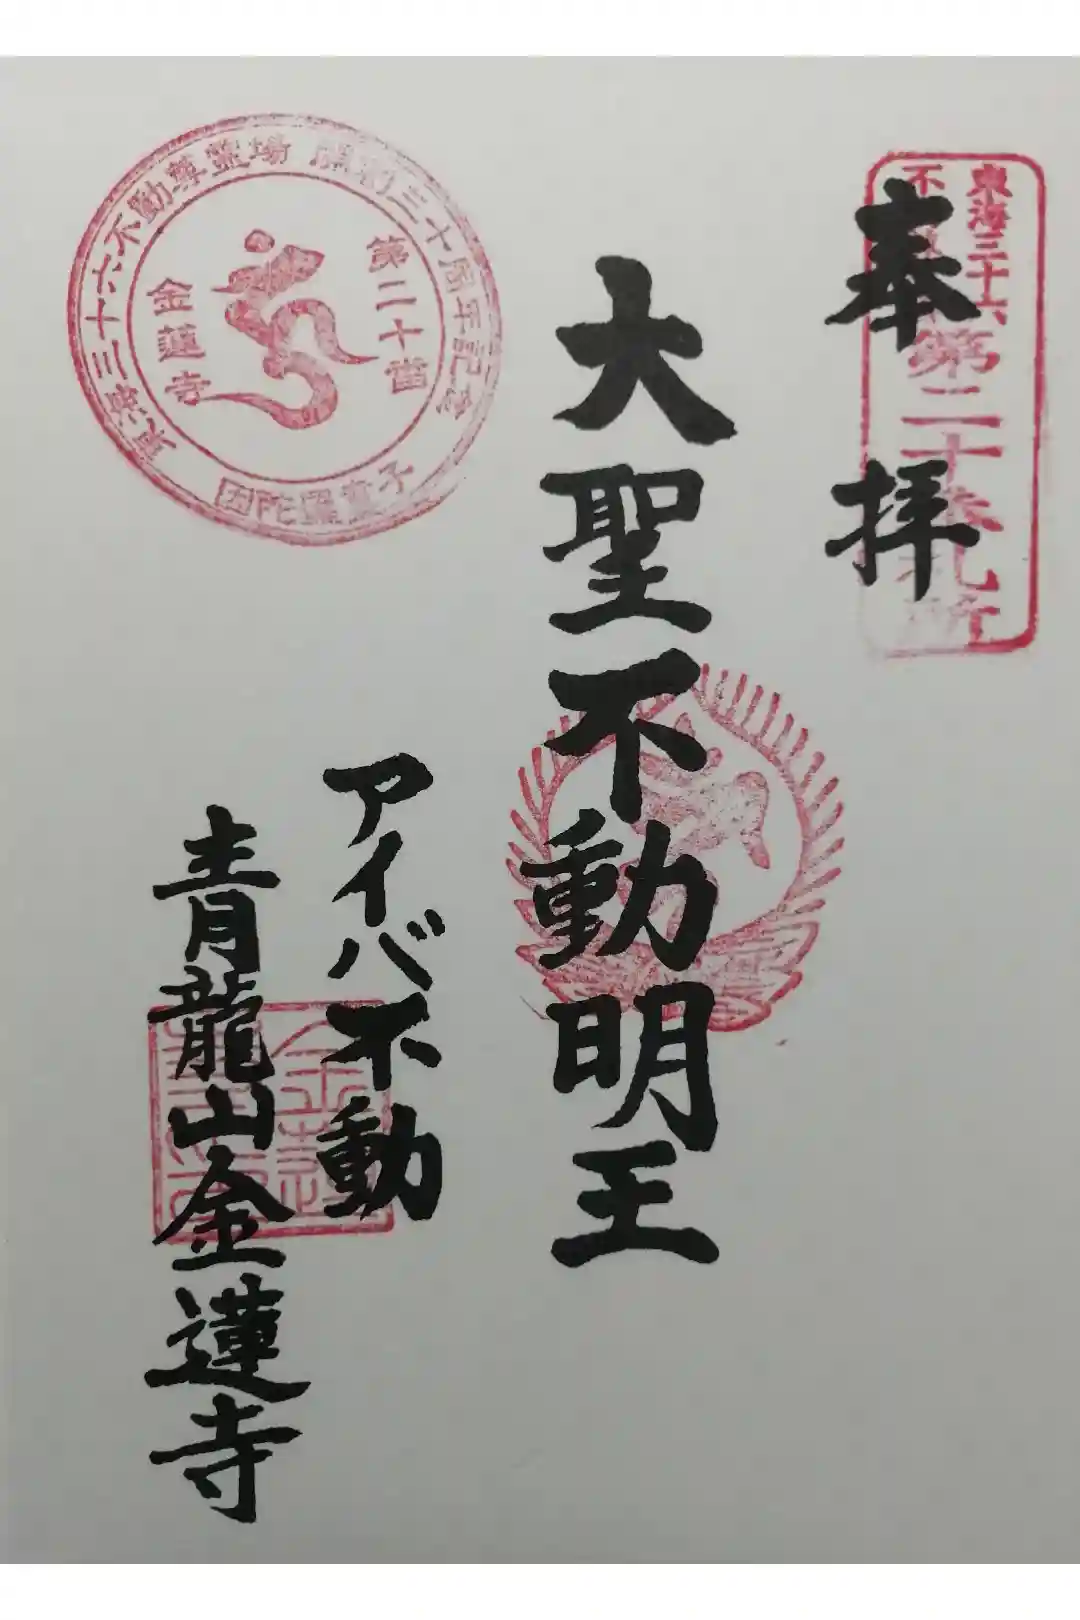 奉拝
東海三十六
不
第二十番札所
大聖不動明王
アイバ不動
青龍山金蓮寺
東海三十六不動尊霊場 開創三十周年記念
第二十番
金蓮寺
因陀羅童子